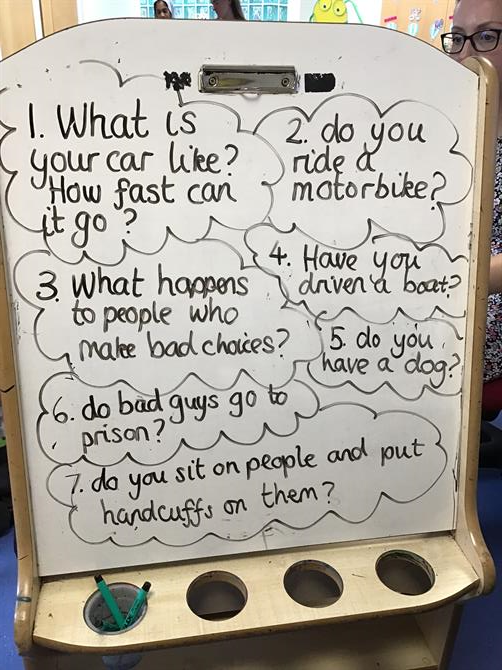 1. What is
your car like?
How fast can
it go?
2. do you
ride a
motorbike?
3. What happens
to people who
make bad choices?
4. Have you
driven a boat?
5. do you
have a dog?
6. do bad guys go to
prison?
7. do you sit on people and put
handcuffs on them?